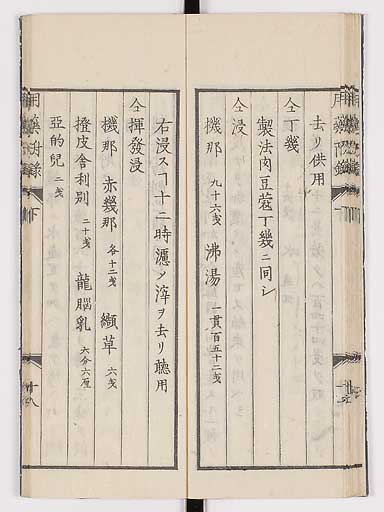 去リ供用
仝丁幾
製法肉豆蔲丁幾ニ同シ
仝浸
機那 九十六戔 沸湯 一貫百五十二戔
右浸スヿ十二時濾メ滓ヲ去リ聴用
仝揮發浸
機那 赤幾那 各十二戔 纈草 六戔
橙皮舎利別 二十戔 龍腦乳 六分六厘
亞的兒 二戔
下
十八